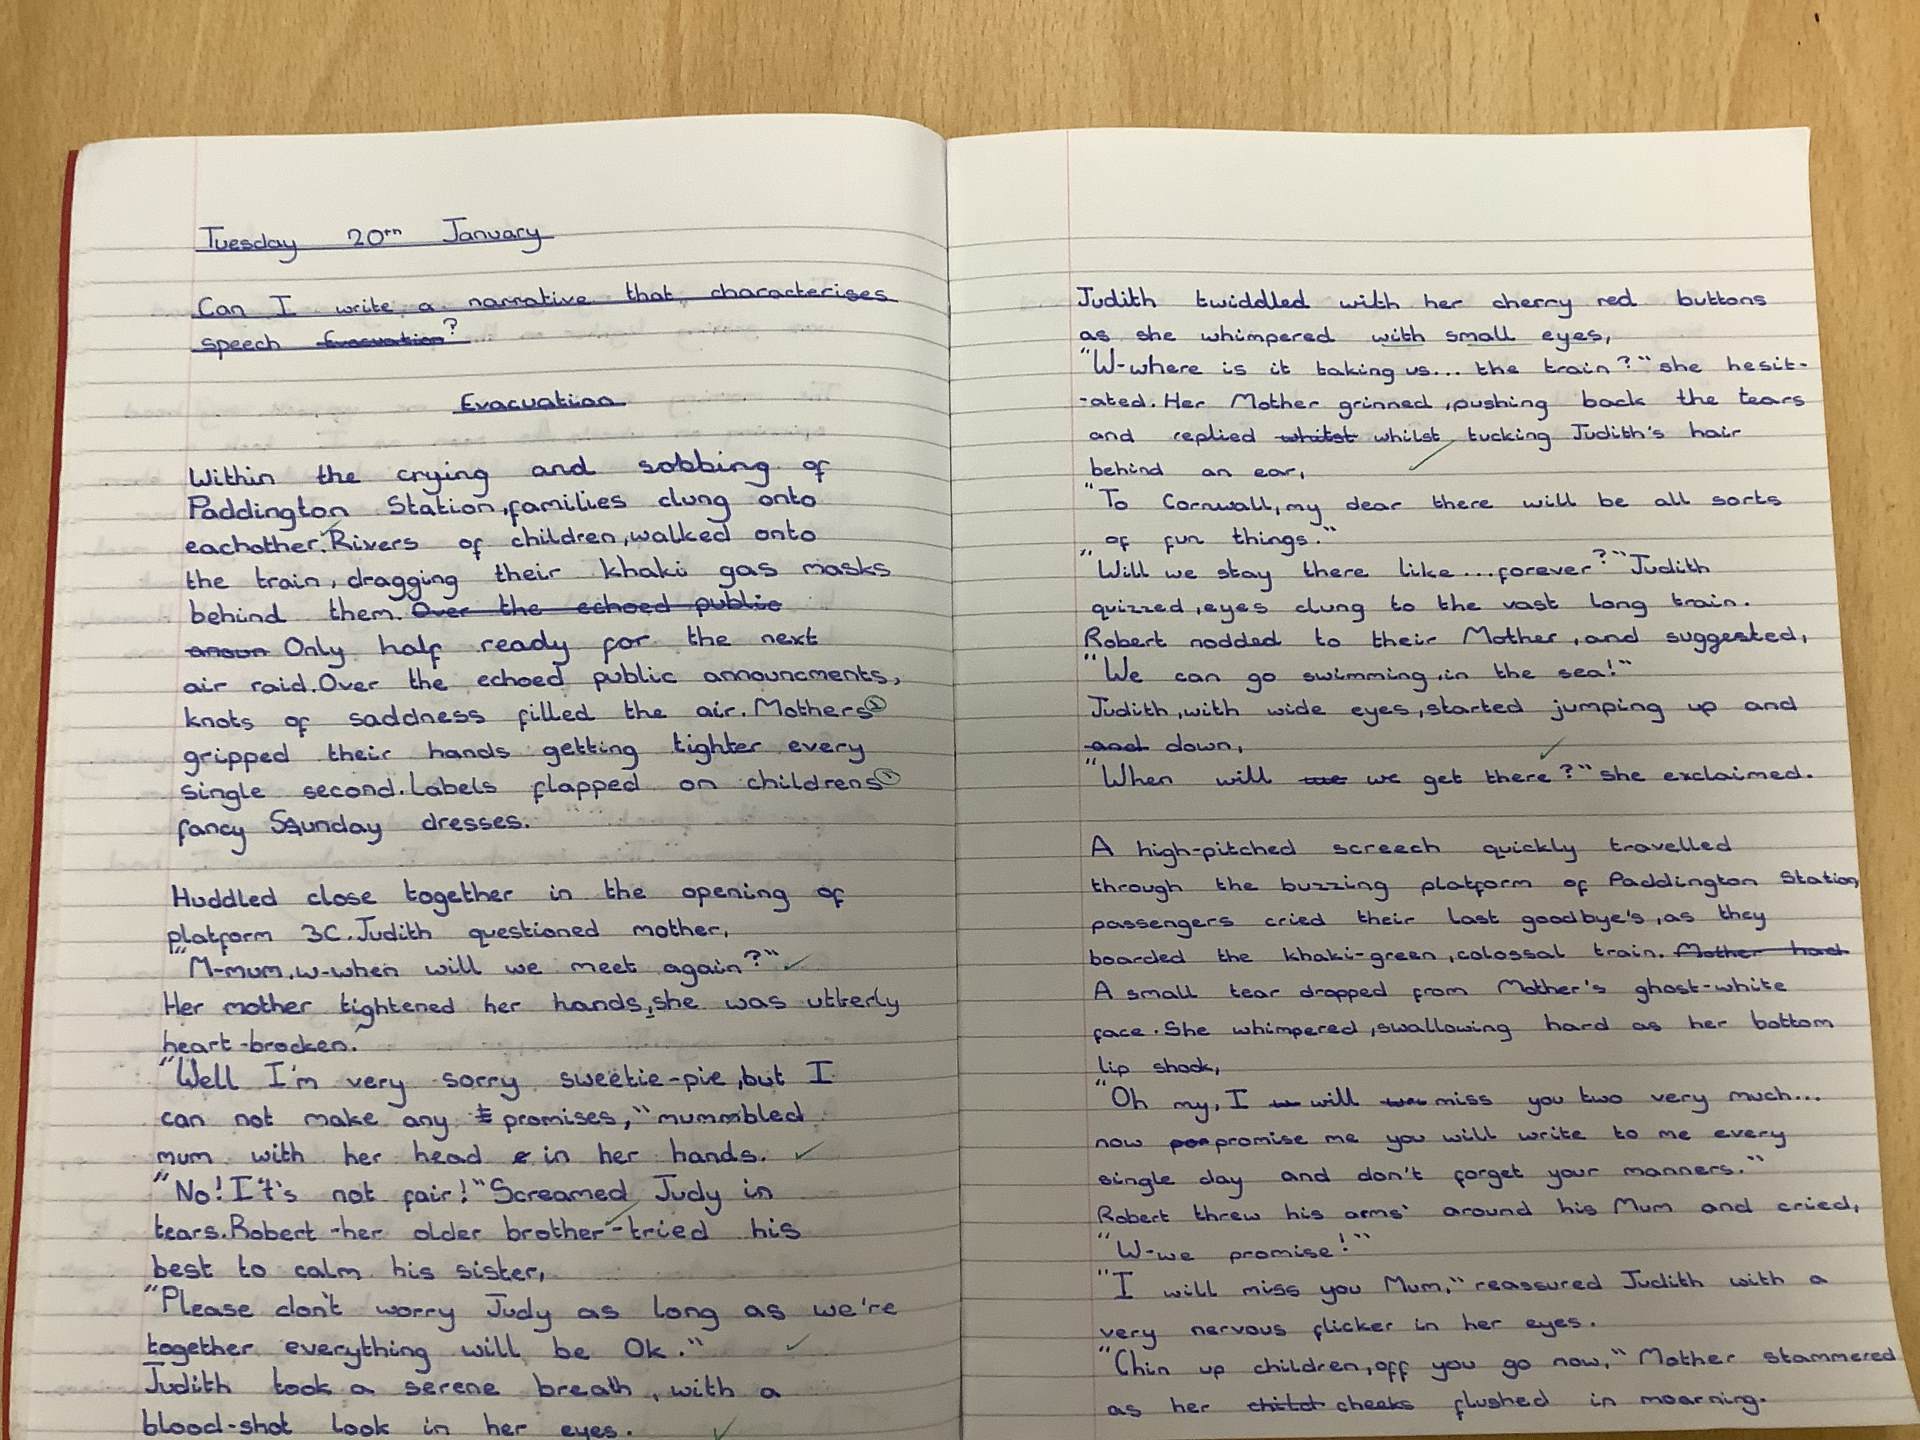 Tuesday 20th January
Can I write a narrative that characterises
speech Evacuation?
Evacuation
Within the crying and sobbing of
Paddington Station, families clung onto
eachother. Rivers of children, walked onto
the train, dragging their khaki gas masks
behind them. Over the echoed public
anoun Only half ready for the next
air raid. Over the echoed public announcments,
knots of saddness filled the air. Mothers
gripped their hands getting tighter every
single second. Labels flapped on childrens
fancy Sunday dresses.
Huddled close together in the opening of
platform 3C. Judith questioned mother,
"M-mum, w-when will we meet again?"
Her mother tightened her hands, she was utterly
heart-brocken.
"Well I'm very sorry sweetie-pie, but I
can not make any t promises," mummbled
mum with her head in her hands.
"No! It's not fair!" Screamed Judy in
tears. Robert -her older brother- tried his
best to calm his sister,
"Please don't worry Judy as long as we're
together everything will be Ok."
Judith took a serene breath, with a
blood-shot look in her eyes.
Judith twiddled with her cherry red buttons
as she whimpered with small eyes,
"W-where is it taking us... the train?" she hesit-
-ated. Her Mother grinned, pushing back the tears
and replied whilst whilst, tucking Judith's hair
behind an ear,
"To Cornwall, my dear there will be all sorts
of fun things."
"Will we stay there like... forever?" Judith
quizzed, eyes clung to the vast long train.
Robert nodded to their Mother, and suggested,
"We can go swimming, in the sea!"
Judith, with wide eyes, started jumping up and
and down,
"When will we get there?" she exclaimed.
A high-pitched screech quickly travelled
through the buzzing platform of Paddington Station,
passengers cried their last goodbye's, as they
boarded the khaki-green, colossal train. Mother had
A small tear dropped from Mother's ghost-white
face. She whimpered, swallowing hard as her bottom
lip shook,
"Oh my, I w will miss you two very much...
now promise me you will write to me every
single day and don't forget your manners."
Robert threw his arms around his Mum and cried,
"W-we promise!"
"I will miss you Mum," reassured Judith with a
very nervous flicker in her eyes.
"Chin up children, off you go now," Mother stammered
as her cheeks flushed in moarning.